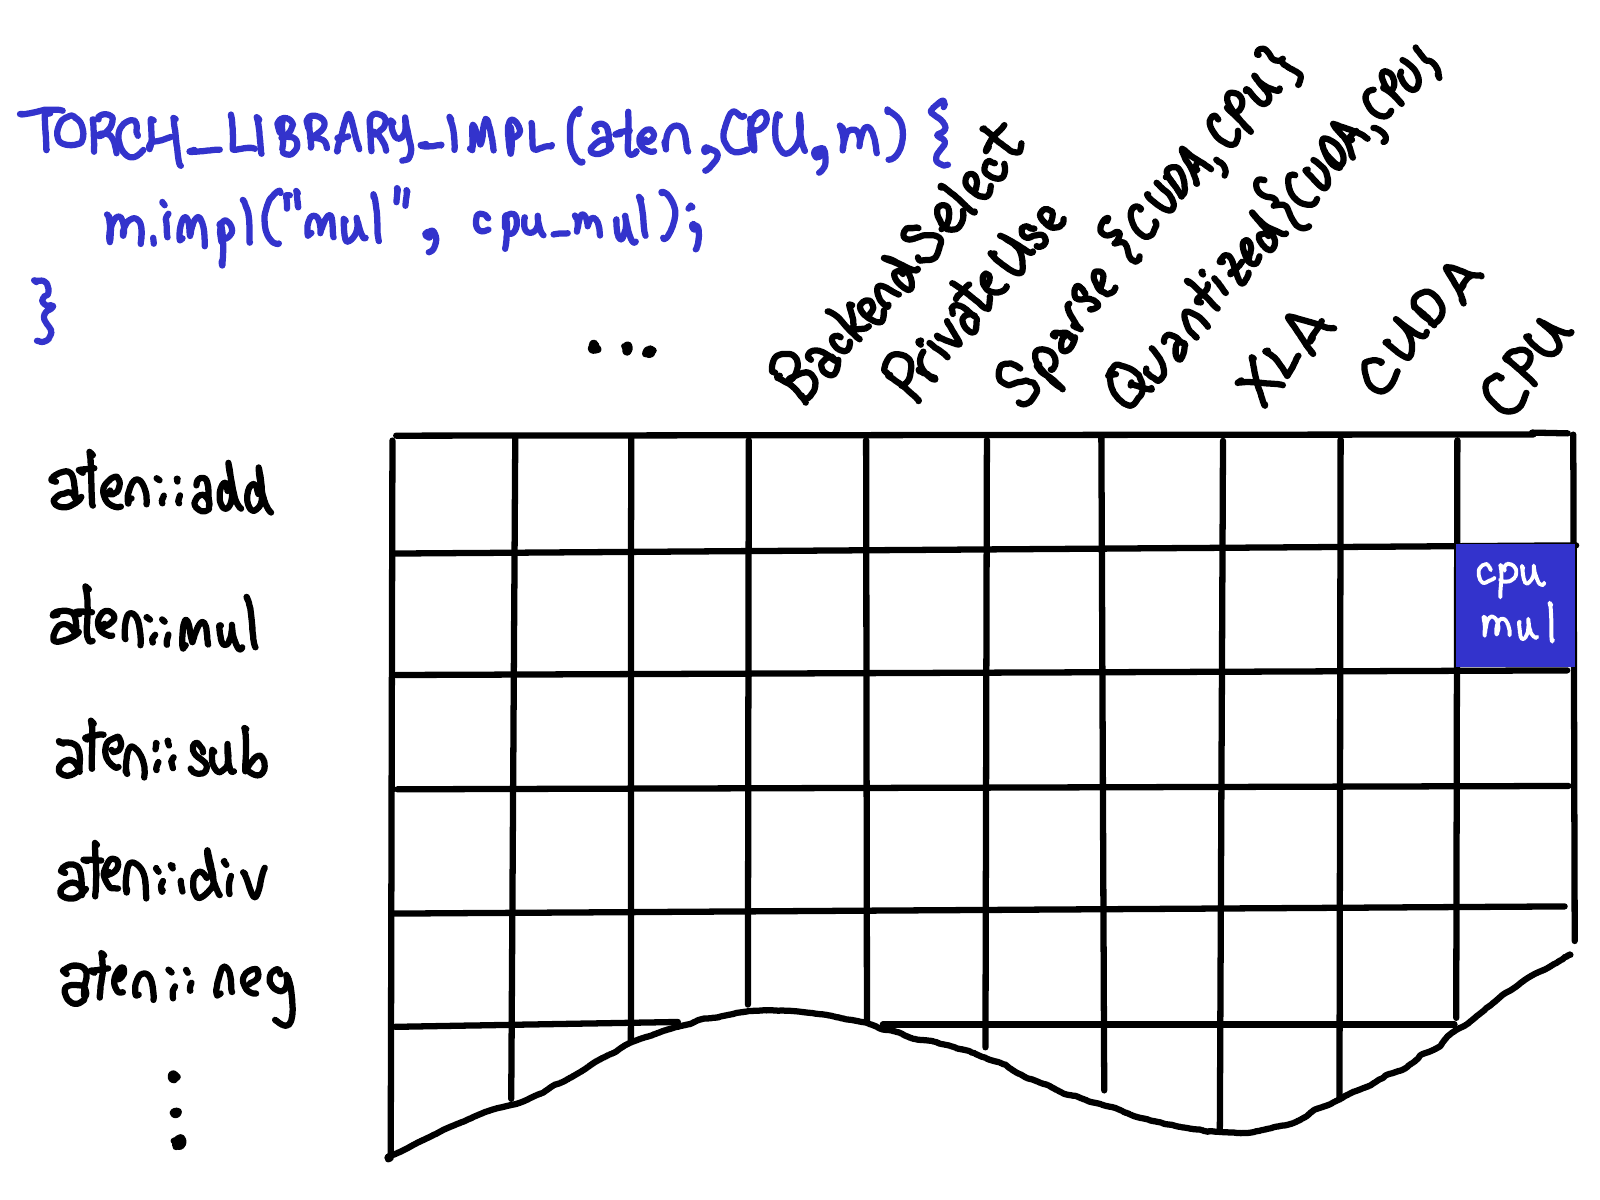 TORCH_LIBRARY_IMPL(aten,CPU,m) {
m.impl("mul", cpu_mul);
}
...
BackendSelect
PrivateUse
Sparse{CUDA,CPU}
Quantized{CUDA,CPU}
XLA
CUDA
CPU
aten::add
aten::mul
cpu
mul
aten::sub
aten::div
aten::neg
⋮